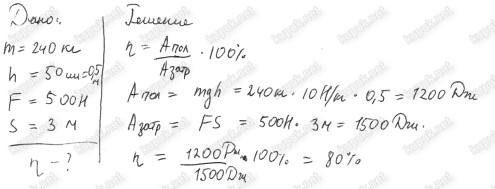 Дано:
m = 240 кг
h = 50 см = 0,5 м
F = 500 Н
S = 3 м
η - ?
Решение
η = Aпол / Aзатр · 100%
Aпол = mgh = 240 кг · 10 Н/кг · 0,5 = 1200 Дж
Aзатр = FS = 500Н · 3м = 1500 Дж.
η = 1200 Дж / 1500 Дж · 100% = 80%